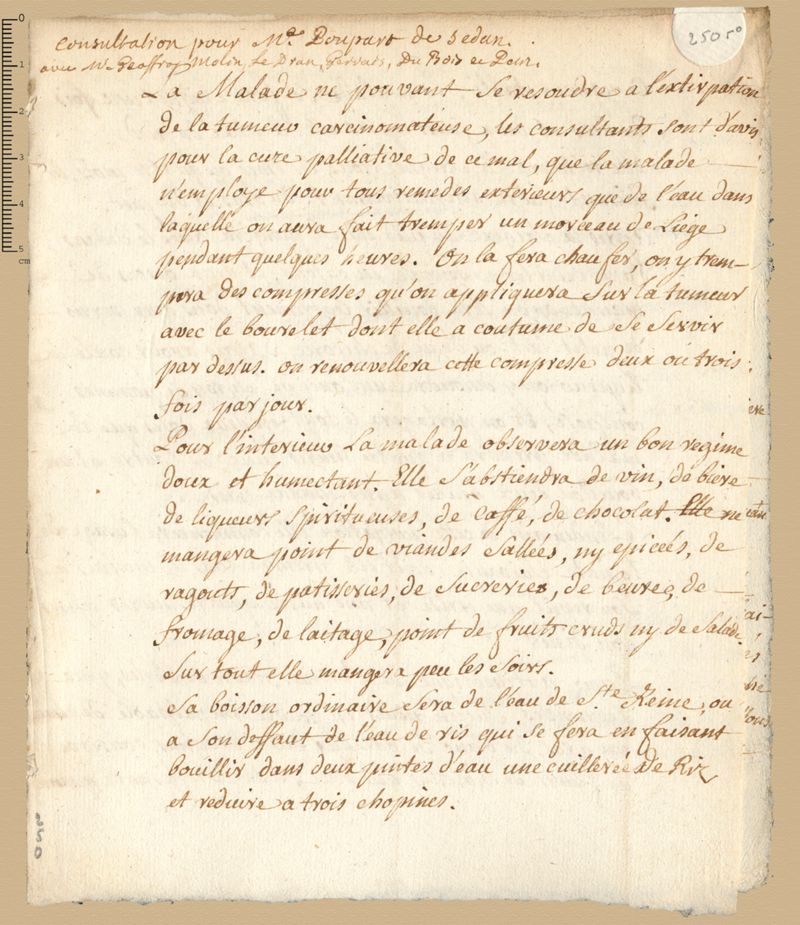 250 r°
Consultation pour Md.e Poupart de Sedan.
avec Mrs Geoffroy, Molin, Le Dran, Gervais, Du Bois et Petit.
La Malade ne pouvant se resoudre a l'éxtirpation
de la tumeur carcinomateuse, les consultants sont d'avis
pour la cure palliative de ce mal, que la malade
n'employe pour tous remedes exterieurs que de l'eau dans
laquelle on aura fait tremper un morceau de Liége
pendant quelques heures. On la fera chaufer, on y trem-
pera des compresses qu'on appliquera sur la tumeur
avec le bourelet dont elle a coutume de se servir
par dessus. on renouvellera cette compresse deux ou trois
fois par jour.
Pour l'interieur La malade observera un bon regime
doux et humectant. Elle s'abstiendra de vin, de biere
de liqueurs spiritueuses, de Caffé, de chocolat. Elle ne
mangera point de viandes sallées, ny epicées, de
ragouts, de patisseries, de sucreries, de beurre, de
fromage, de laitage, point de fruits cruds ny de salade
sur tout elle mangera peu les soirs.
Sa boisson ordinaire sera de l'eau de Ste Reine, ou
a son deffaut de l'eau de ris qui se fera en faisant
bouillir dans deux pintes d'eau une cuillerée de Riz
et reduire a trois chopines.
0
1
2
3
4
5
cm